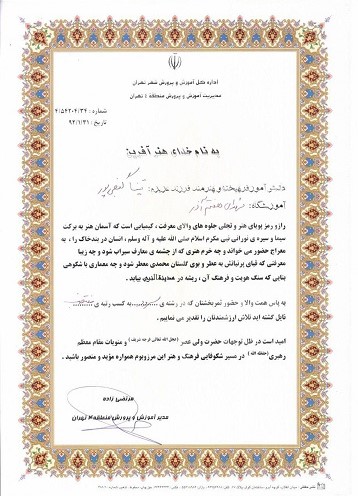 اداره کل آموزش و پرورش شهر تهران
مدیریت آموزش و پرورش منطقه ۴ تهران
شماره : ۴/۵۴۲۰۴/۳۴
تاریخ : ۹۴/۱/۳۱
به نام خدای هنر آفرین
دانش آموز فرهیخته و هنرمند فرزند عزیزم:
آموزشگاه:
راز و رمز پویای هنر و تجلی جلوه های والای معرفت ، کیمیایی است که آسمان هنر به برکت
سیما و سیره ی نورانی نبی مکرم اسلام صلی الله علیه و آله وسلم ، انسان در بندخاک را ، به
معراج حضور می خواند و چه خرم هنری که از چشمه ی معارف سیراب شود و چه زیبا
معرفتی که قبای پرنیانش به عطر و بوی گلستان محمدی معطر شود و چه معماری با شکوهی
بنایی که سنگ هویت و فرهنگ آن ، ریشه در مدینةالنبی بیابد .
به پاس همت والا و حضور ثمربخشتان که در رشته ی به کسب رتبه ی
نایل گشته اید تلاش ارزشمندتان را تقدیر می نماییم .
امید است در ظل توجهات حضرت ولی عصر (عجل الله تعالی فرجه شریف) و منویات مقام معظم
رهبری (حفظه الله) در مسیر شکوفایی فرهنگ و هنر این مرزوبوم همواره مؤید و منصور باشید .
مرتضی زاده
مدیر آموزش و پرورش منطقه ۴ تهران